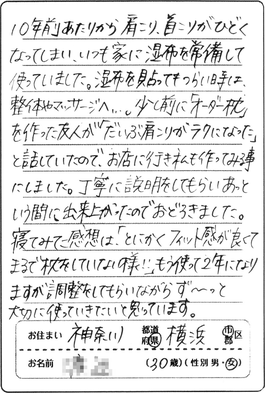 10年前あたりから肩こり、首こりがひどく
なってしまい、いつも家に湿布を常備して
使っていました。湿布を貼ってもつらい時は、
整体やマッサージへ...。少し前に「オーダー枕」
を作った友人が"だいぶ肩こりがラクになった"
と話していたので、お店に行き私も作ってみる事
にしました。丁寧に説明をしてもらいあっと
いう間に出来上がったのでおどろきました。
寝てみてご感想は、「とにかくフィット感が良くて
まるで枕をしていない様!!」もう使って2年になり
ますが調整をしてもらいながらず～っと
大切に使っていきたいと思っています。
お住まい 神奈川 都道府県 横浜 市区郡
お名前 (30歳)(性別 男・女)